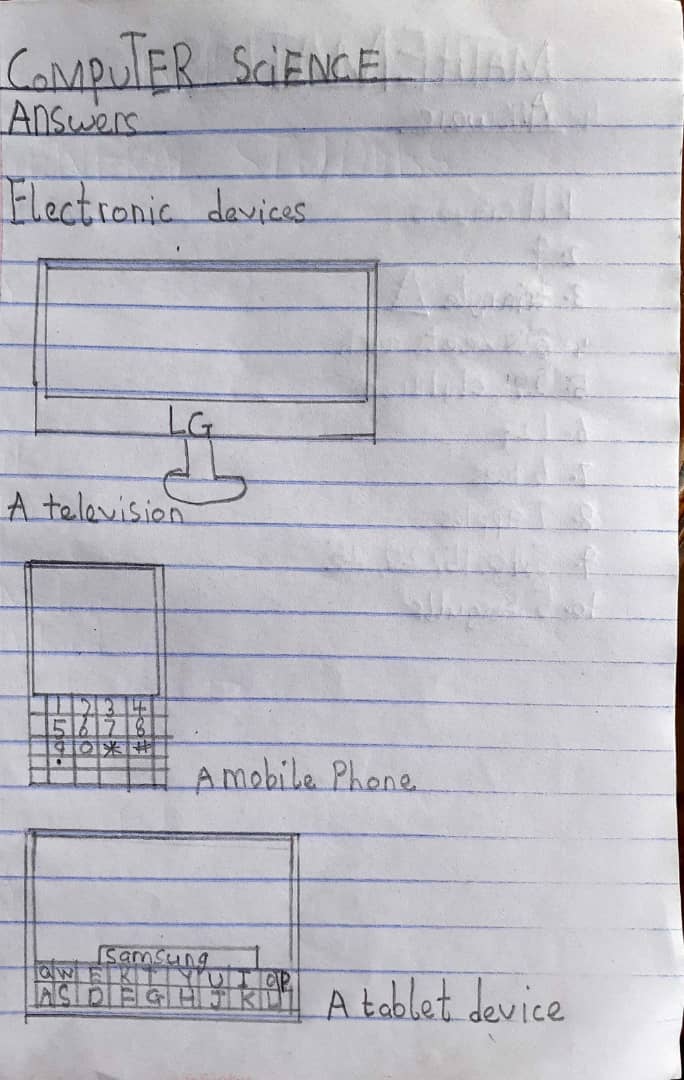 COMPUTER SCIENCE
Answers
Electronic devices
LG
A television
1 2 3 4
5 6 7 8
9 0 * #
A mobile Phone
Samsung
Q W E R T Y U I O P
A S D F G H J K L
A tablet device